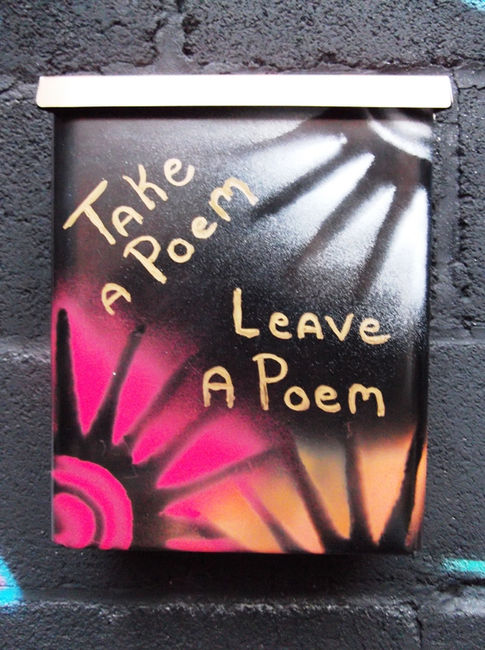 Take
a Poem
Leave
A Poem